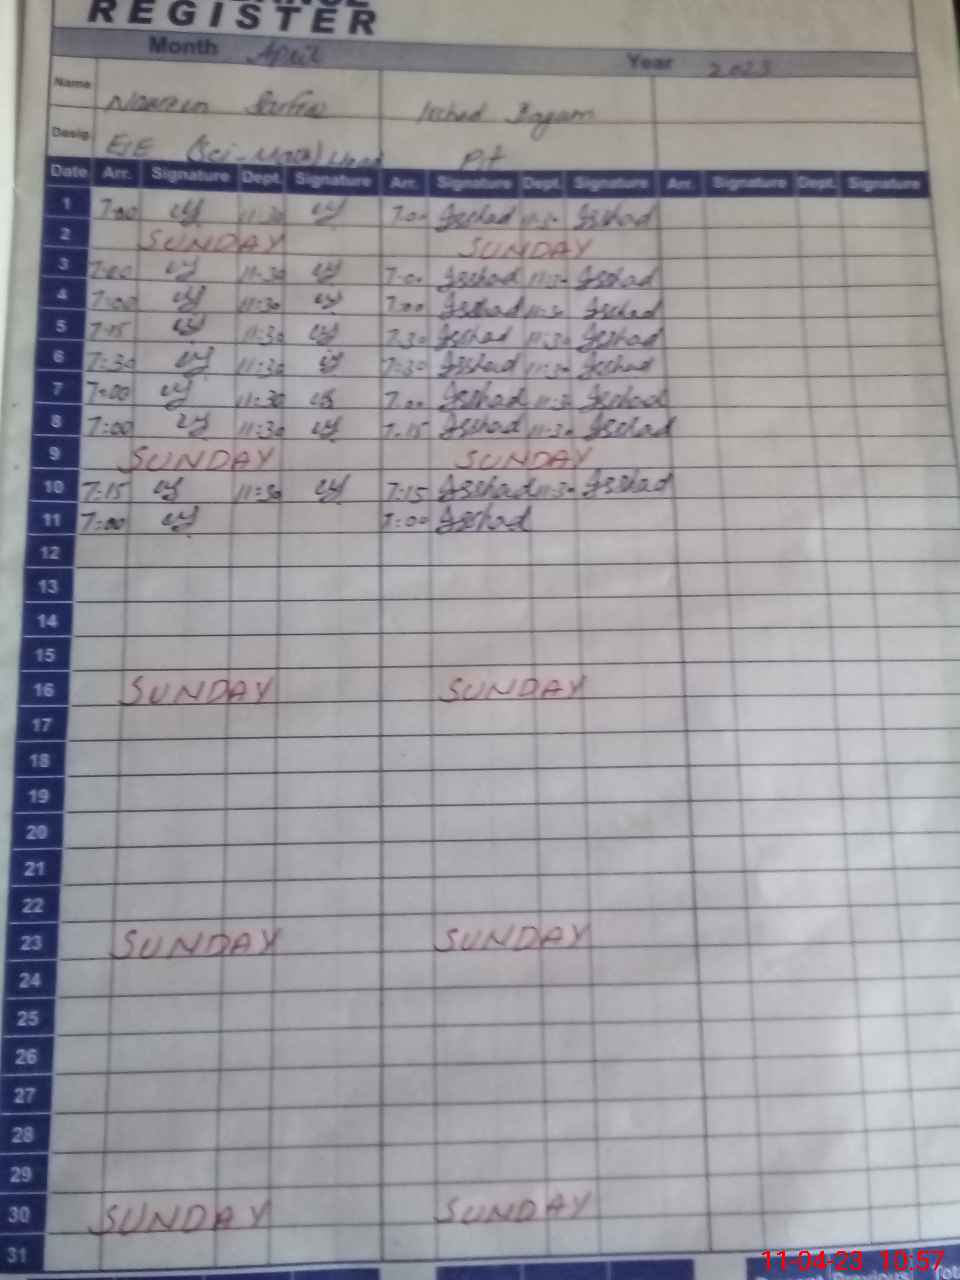 REGISTER
Month April Year 2023
Name Noureen Irshad Bagum
Desig. ESE (Sci-Math) P.t
Date Arr. Signature Dept. Signature Arr. Signature Dept. Signature Arr. Signature Dept. Signature
1 7:00 11:30 7:00 Irshad 11:30 Irshad
2 SUNDAY SUNDAY
3 7:00 11:30 7:00 Irshad 11:30 Irshad
4 7:00 11:30 7:00 Irshad 11:30 Irshad
5 7:15 11:30 7:30 Irshad 11:30 Irshad
6 7:30 11:30 7:30 Irshad 11:30 Irshad
7 7:00 11:30 7:00 Irshad 11:30 Irshad
8 7:00 11:30 7:15 Irshad 11:30 Irshad
9 SUNDAY SUNDAY
10 7:15 11:30 7:15 Irshad 11:30 Irshad
11 7:00 7:00 Irshad
12
13
14
15
16 SUNDAY SUNDAY
17
18
19
20
21
22
23 SUNDAY SUNDAY
24
25
26
27
28
29
30 SUNDAY SUNDAY
31
11-04-23 10:57